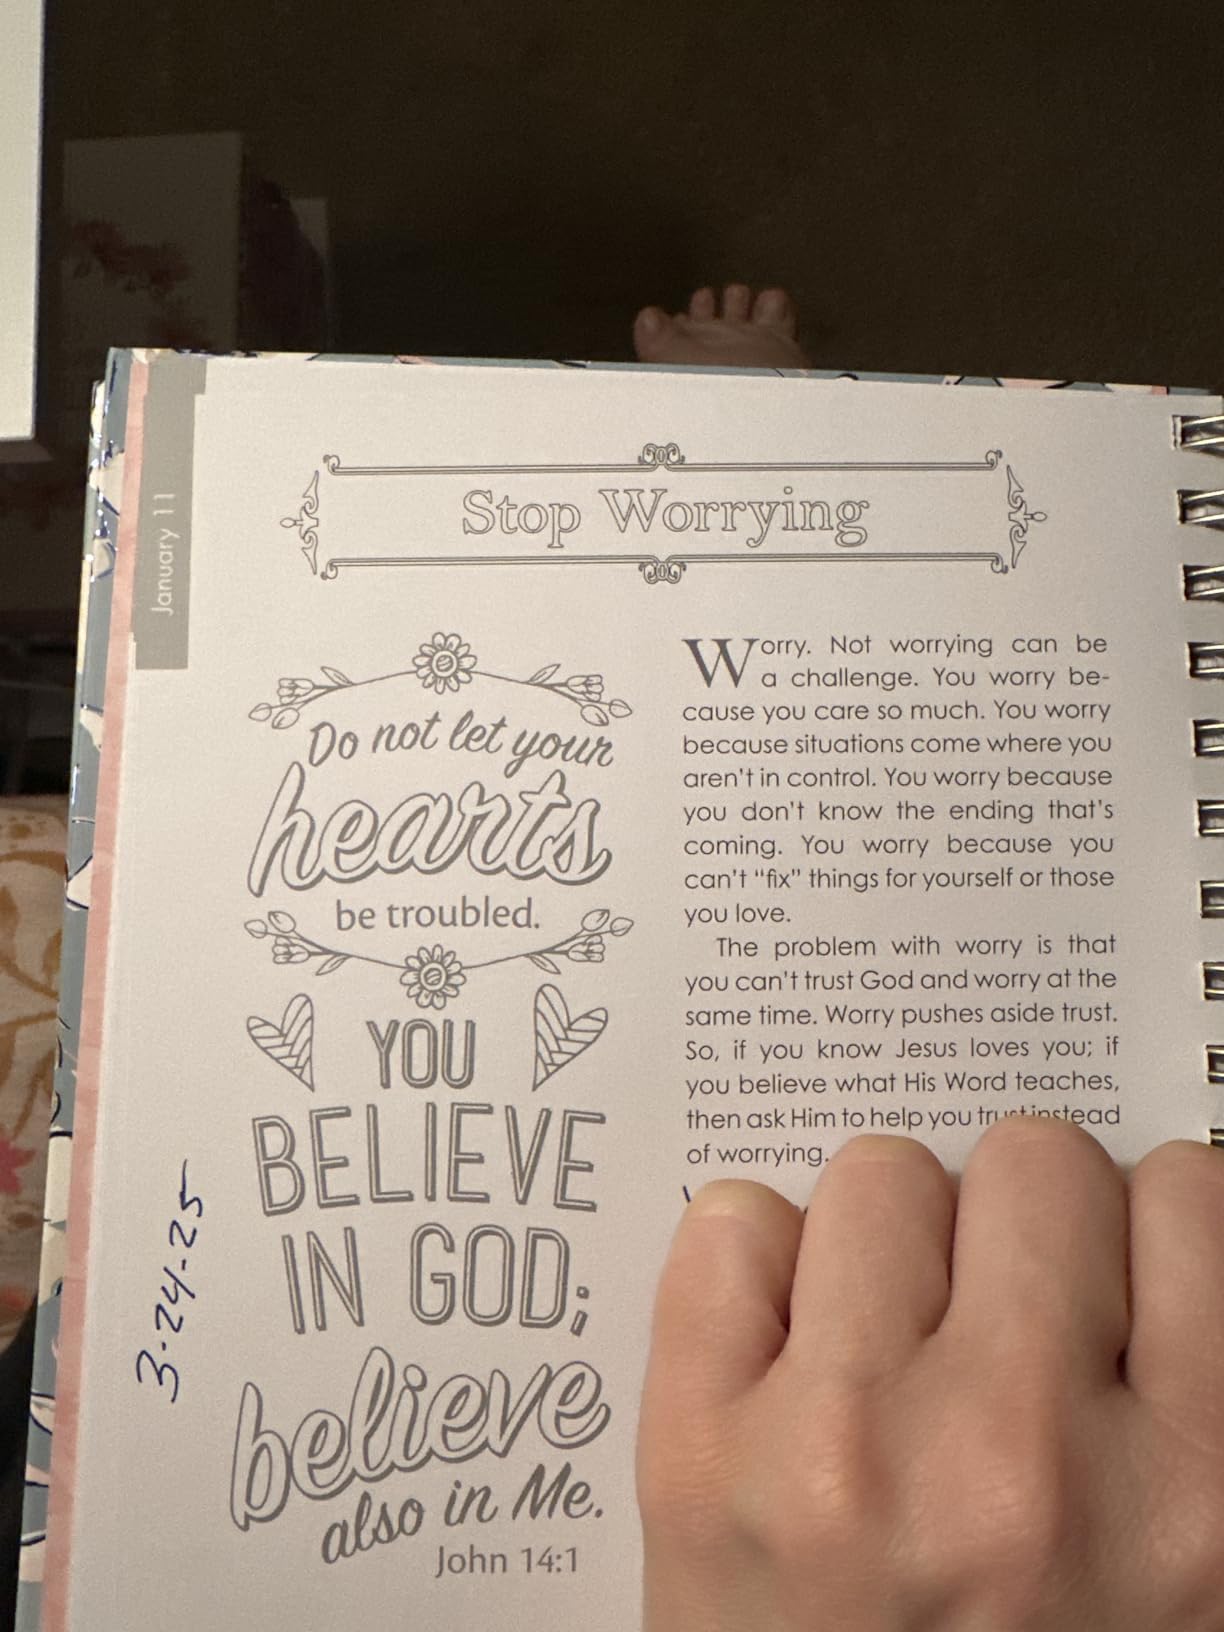 January 11
Stop Worrying
Do not let your
hearts
be troubled.
YOU
BELIEVE
IN GOD;
believe
also in Me.
John 14:1
3-24-25
Worry. Not worrying can be
a challenge. You worry be-
cause you care so much. You worry
because situations come where you
aren't in control. You worry because
you don't know the ending that's
coming. You worry because you
can't "fix" things for yourself or those
you love.
The problem with worry is that
you can't trust God and worry at the
same time. Worry pushes aside trust.
So, if you know Jesus loves you; if
you believe what His Word teaches,
then ask Him to help you trust instead
of worrying.